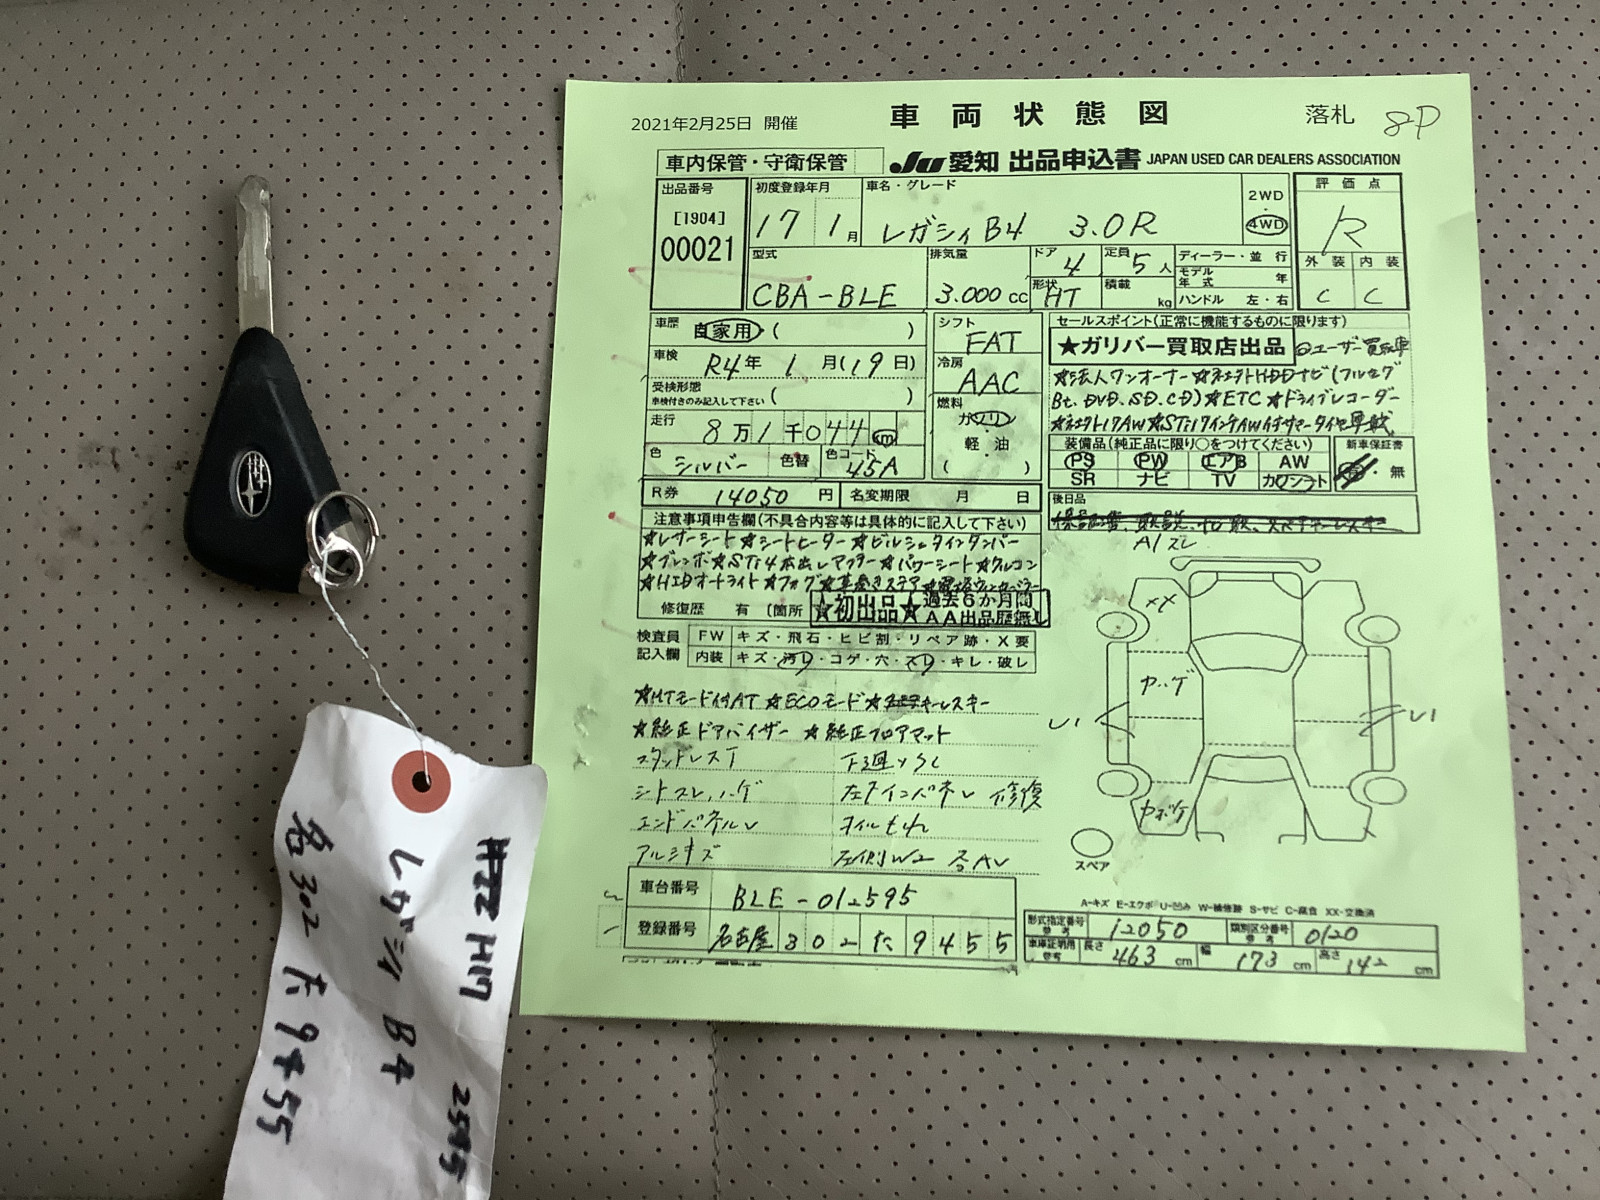 2021年2月25日 開催
車両状態図
落札
8P
車内保管・守衛保管
JU愛知 出品申込書 JAPAN USED CAR DEALERS ASSOCIATION
出品番号
[1904]
00021
初度登録年月
17 1月
車名・グレード
レガシィB4 3.0R
2WD
・
4WD
評価点
R
外装 内装
C C
型式
CBA-BLE
排気量
3.000 cc
ドア 4
定員 5 人
形状 HT
積載 kg
ディーラー・並行
モデル年式 年
ハンドル 左・右
車歴 自家用 ( )
車検 R4年 1月(19日)
受検形態
車検付きのみ記入して下さい ( )
走行 8万1千044 km
色 シルバー 色替 色コード 45A
シフト
FAT
冷房
AAC
燃料
ガソリン
軽・油
( )
セールスポイント(正常に機能するものに限ります)
★ガリバー買取店出品 ◎ユーザー買取車
☆法人ワンオーナー☆社外HDDナビ(フルセグ
Bt、DVD、SD、CD)☆ETC ☆ドライブレコーダー
☆社外17AW☆STi17インチAW付サマータイヤ車載
装備品(純正品に限り○をつけてください)
PS PW エアB AW
SR ナビ TV カワシート
新車保証書
有・無
R券 14050 円
名変期限 月 日
後日品
注意事項申告欄(不具合内容等は具体的に記入して下さい)
☆レザーシート☆シートヒーター☆ビルシュタインダンパー
☆ブレンボ☆STi4本出しマフラー☆パワーシート☆クルコン
☆HIDオートライト☆フォグ☆革巻きステア
修復歴 有 〔箇所
★初出品★ 過去6か月間
AA出品歴無し
検査員
記入欄
FW キズ・飛石・ヒビ割・リペア跡・X要
内装 キズ・汚れ・コゲ・穴・スレ・キレ・破レ
A1スレ
☆MTモード付AT ☆ECOモード☆キーレスキー
☆純正ドアバイザー ☆純正フロアマット
スタッドレスT
シートスレ、ハゲ
エンドパネル
アルミキズ
下廻
修復
オイルもれ
左側W2 各AU
XX
ヤハゲ
ヤボケ
スペア
車台番号 BLE-012595
登録番号 名古屋 302 た 9455
A-キズ E-エクボ U-凹み W-補修跡 S-サビ C-腐食 XX-交換済
形式指定番号 参考 12050
類別区分番号 参考 0120
車庫証明用 参考 長さ 463 cm 幅 173 cm 高さ 142 cm
H17
2595
レガシィ B4
名302 た 9455